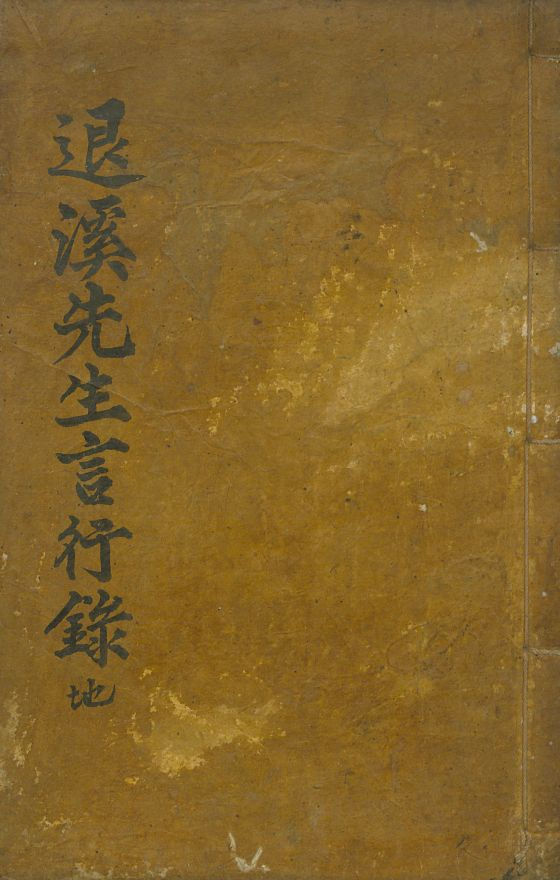 退溪先生言行錄 地